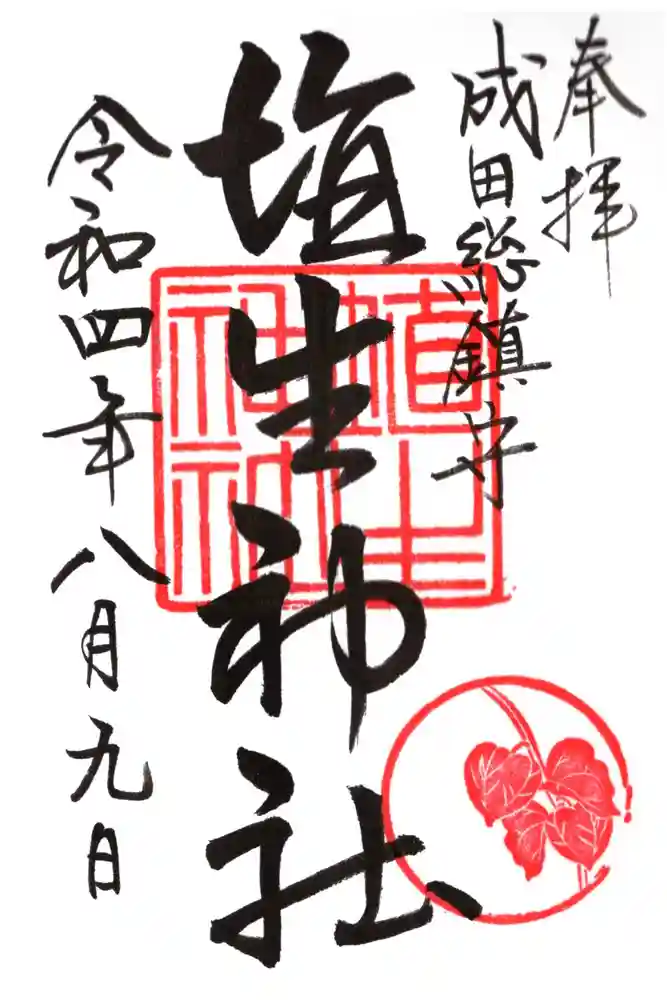 奉拝
成田総鎮守
埴生神社
埴生神社
令和四年八月九日